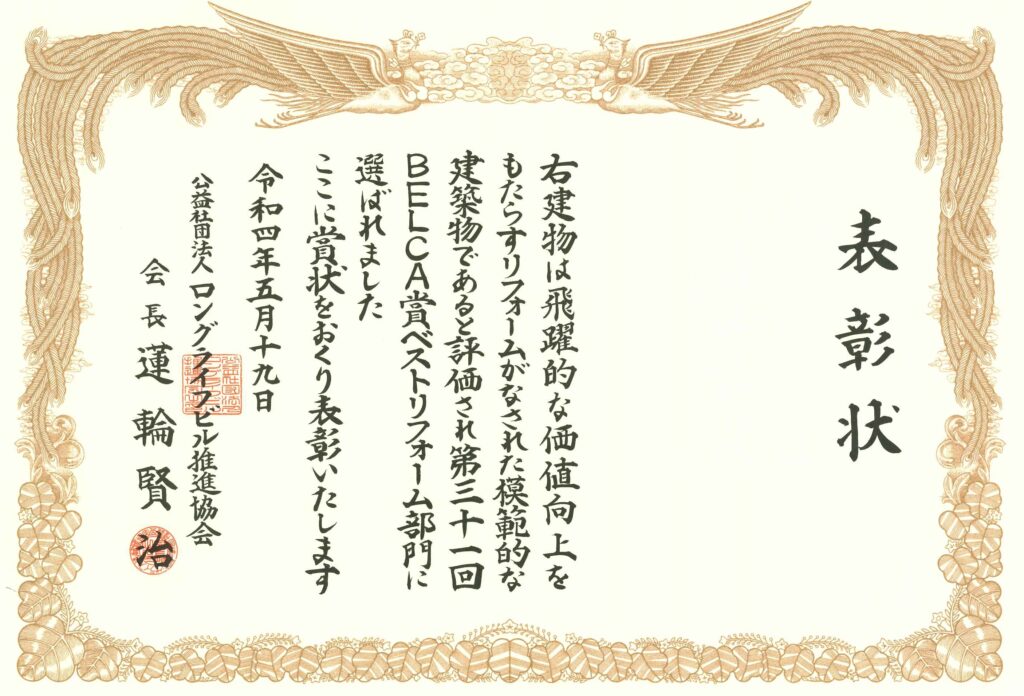 表彰状
右建物は飛躍的な価値向上を
もたらすリフォームがなされた模範的な
建築物であると評価され第三十一回
BELCA賞ベストリフォーム部門に
選ばれました
ここに賞状をおくり表彰いたします
令和四年五月十九日
公益社団法人ロングライフビル推進協会
会長 蓮輪賢治